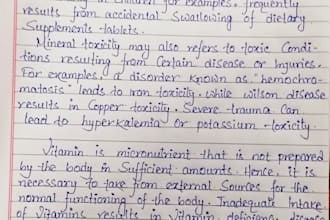 in children for examples, frequently
results from accidental Swallowing of dietary
Supplements-tablets.
Mineral toxicity may also refers to toxic Condi-
tions resulting from Certain disease or Injuries.
For examples, a disorder known as "hemochro-
matosis" leads to iron toxicity, while wilson disease
results in Copper toxicity. Severe-trauma Can
lead to hyperkalemia or potassium-toxicity.
Vitamin is micronutrient that is not prepared
by the body in Sufficient amounts. Hence, it is
necessary to take from external Sources for the
normal functioning of the body. Inadequate Intake
of Vitamins results in Vitamin deficiency disease